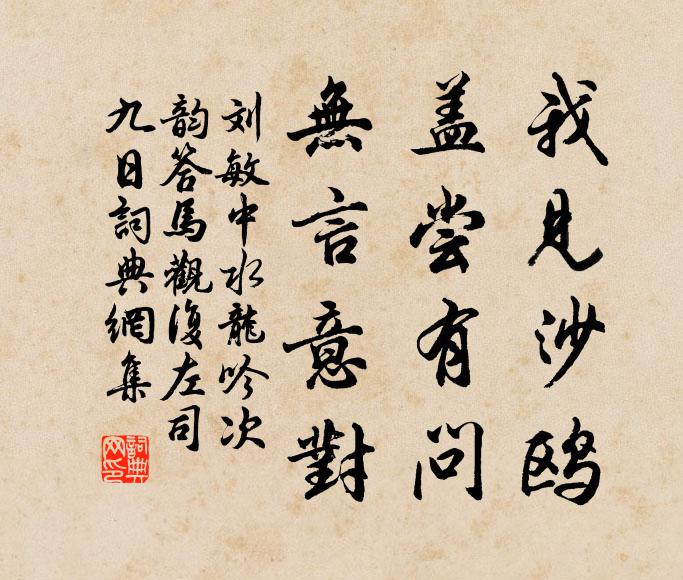 我見沙鸥
盖尝有問
無言意對
刘敏中水龍吟次
韵答馬觀復左司
九日詞典網集
詞典
网印